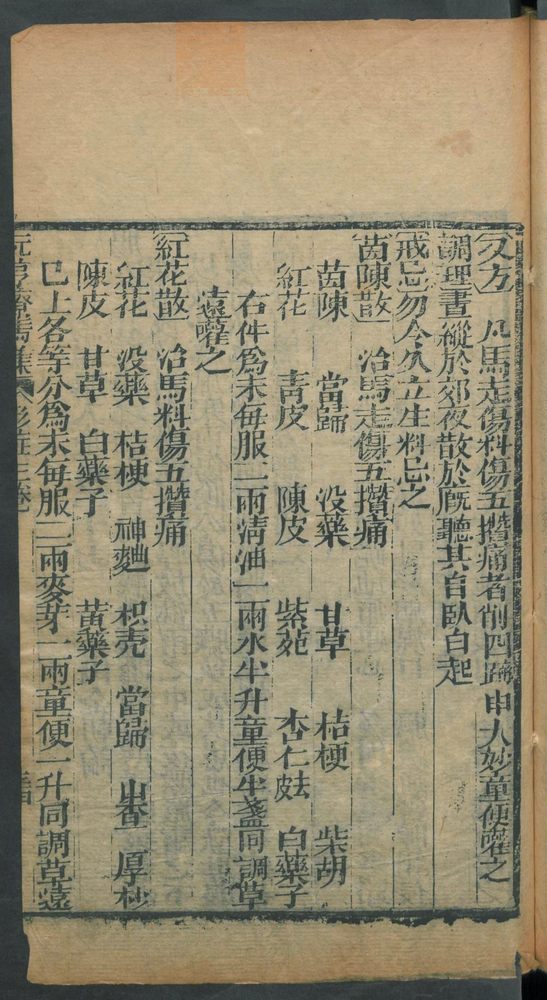 又方 凡馬走傷料傷五攢痛者削四蹄 妙童便嚾之
調理晝縱於郊夜散於厩聽其自臥自起
戒忌勿令久立生料忌之
茵陳散 治馬走傷五攢痛
茵陳 當歸 没藥 甘草 桔梗 柴胡
紅花 青皮 陳皮 紫苑 杏仁 白藥子
右件為末每服二兩清油一兩水半升童便半盞同調草
遠嚾之
紅花散 治馬料傷五攢痛
紅花 没藥 桔梗 神麯 枳壳 當歸 山查 厚朴
陳皮 甘草 白藥子 黃藥子
已上各等分為末每服二兩麥芽一兩童便一升同調草遠
元亨療馬集